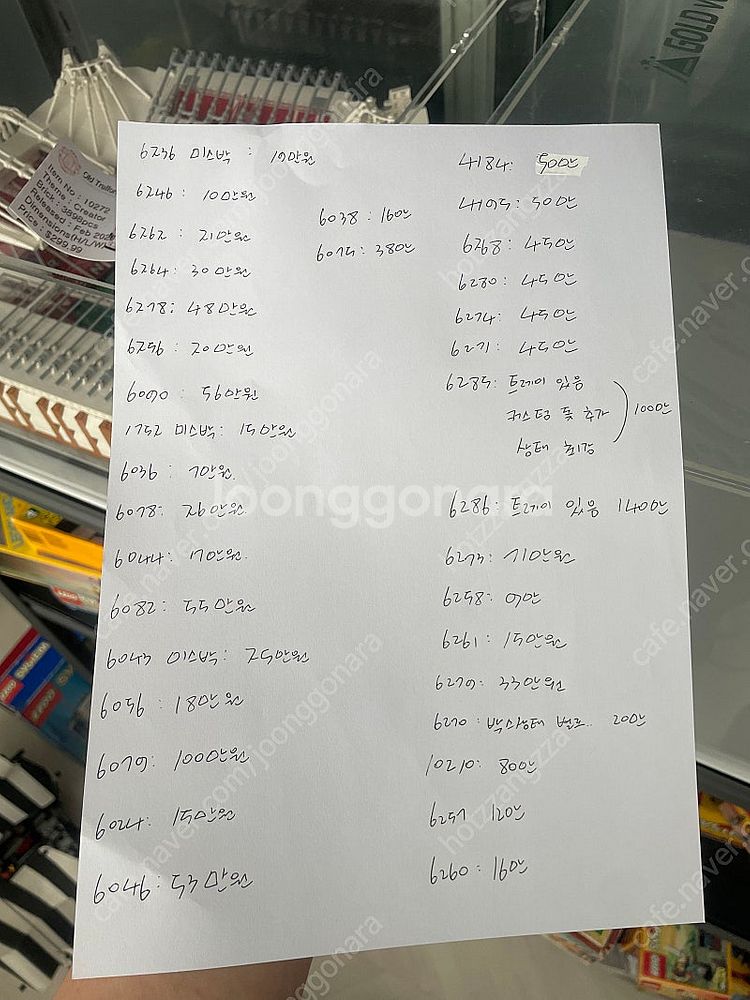 6236 미스박 : 19만원
6246 : 10만원
6262 : 21만원
6264 : 30만원
6278 : 48만원
6256 : 20만원
6090 : 56만원
1752 미스박 : 15만원
6036 : 7만원.
6078 : 26만원
6044 : 70만원
6082 : 55만원
6043 미스박 : 25만원
6056 : 18만원
6079 : 100만원
6024 : 15만원
6046 : 53만원
6038 : 16만
6075 : 38만
4184 : 50만
4195 : 50만
6268 : 45만
6280 : 45만
6274 : 45만
6271 : 45만
6285 : 트레이 있음
커스텀 돛 추가
상태 최강
100만
6286 : 트레이 있음 140만
6273 : 71만원
6258 : 9만
6261 : 15만원
6279 : 33만원
6270 : 박스상태 별로.. 20만
10210 : 80만
6257 12만
6260 : 16만
Old Trafford
Item No : 10272
Theme : Creator
Brick : 3898pcs
Released : Feb
Dimensions(H/L/W)
Price : $299.99
GOLD
LEGO
SYSTEM
LEGO
LEGO
joonggonara
cafe.naver.com/joonggonara